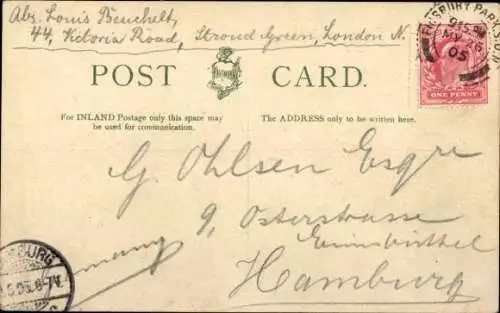 Abs. Louis Beuchelt,
44, Victoria Road, Stroud Green, London N.
FINSBURY PARK STATION
915 PM
MY 26
05
POST CARD.
ONE PENNY
For INLAND Postage only this space may
be used for communication.
The ADDRESS only to be written here.
G. Ohlsen Esqre
9, Osterstrasse
Eimsbüttel
Hamburg
Germany